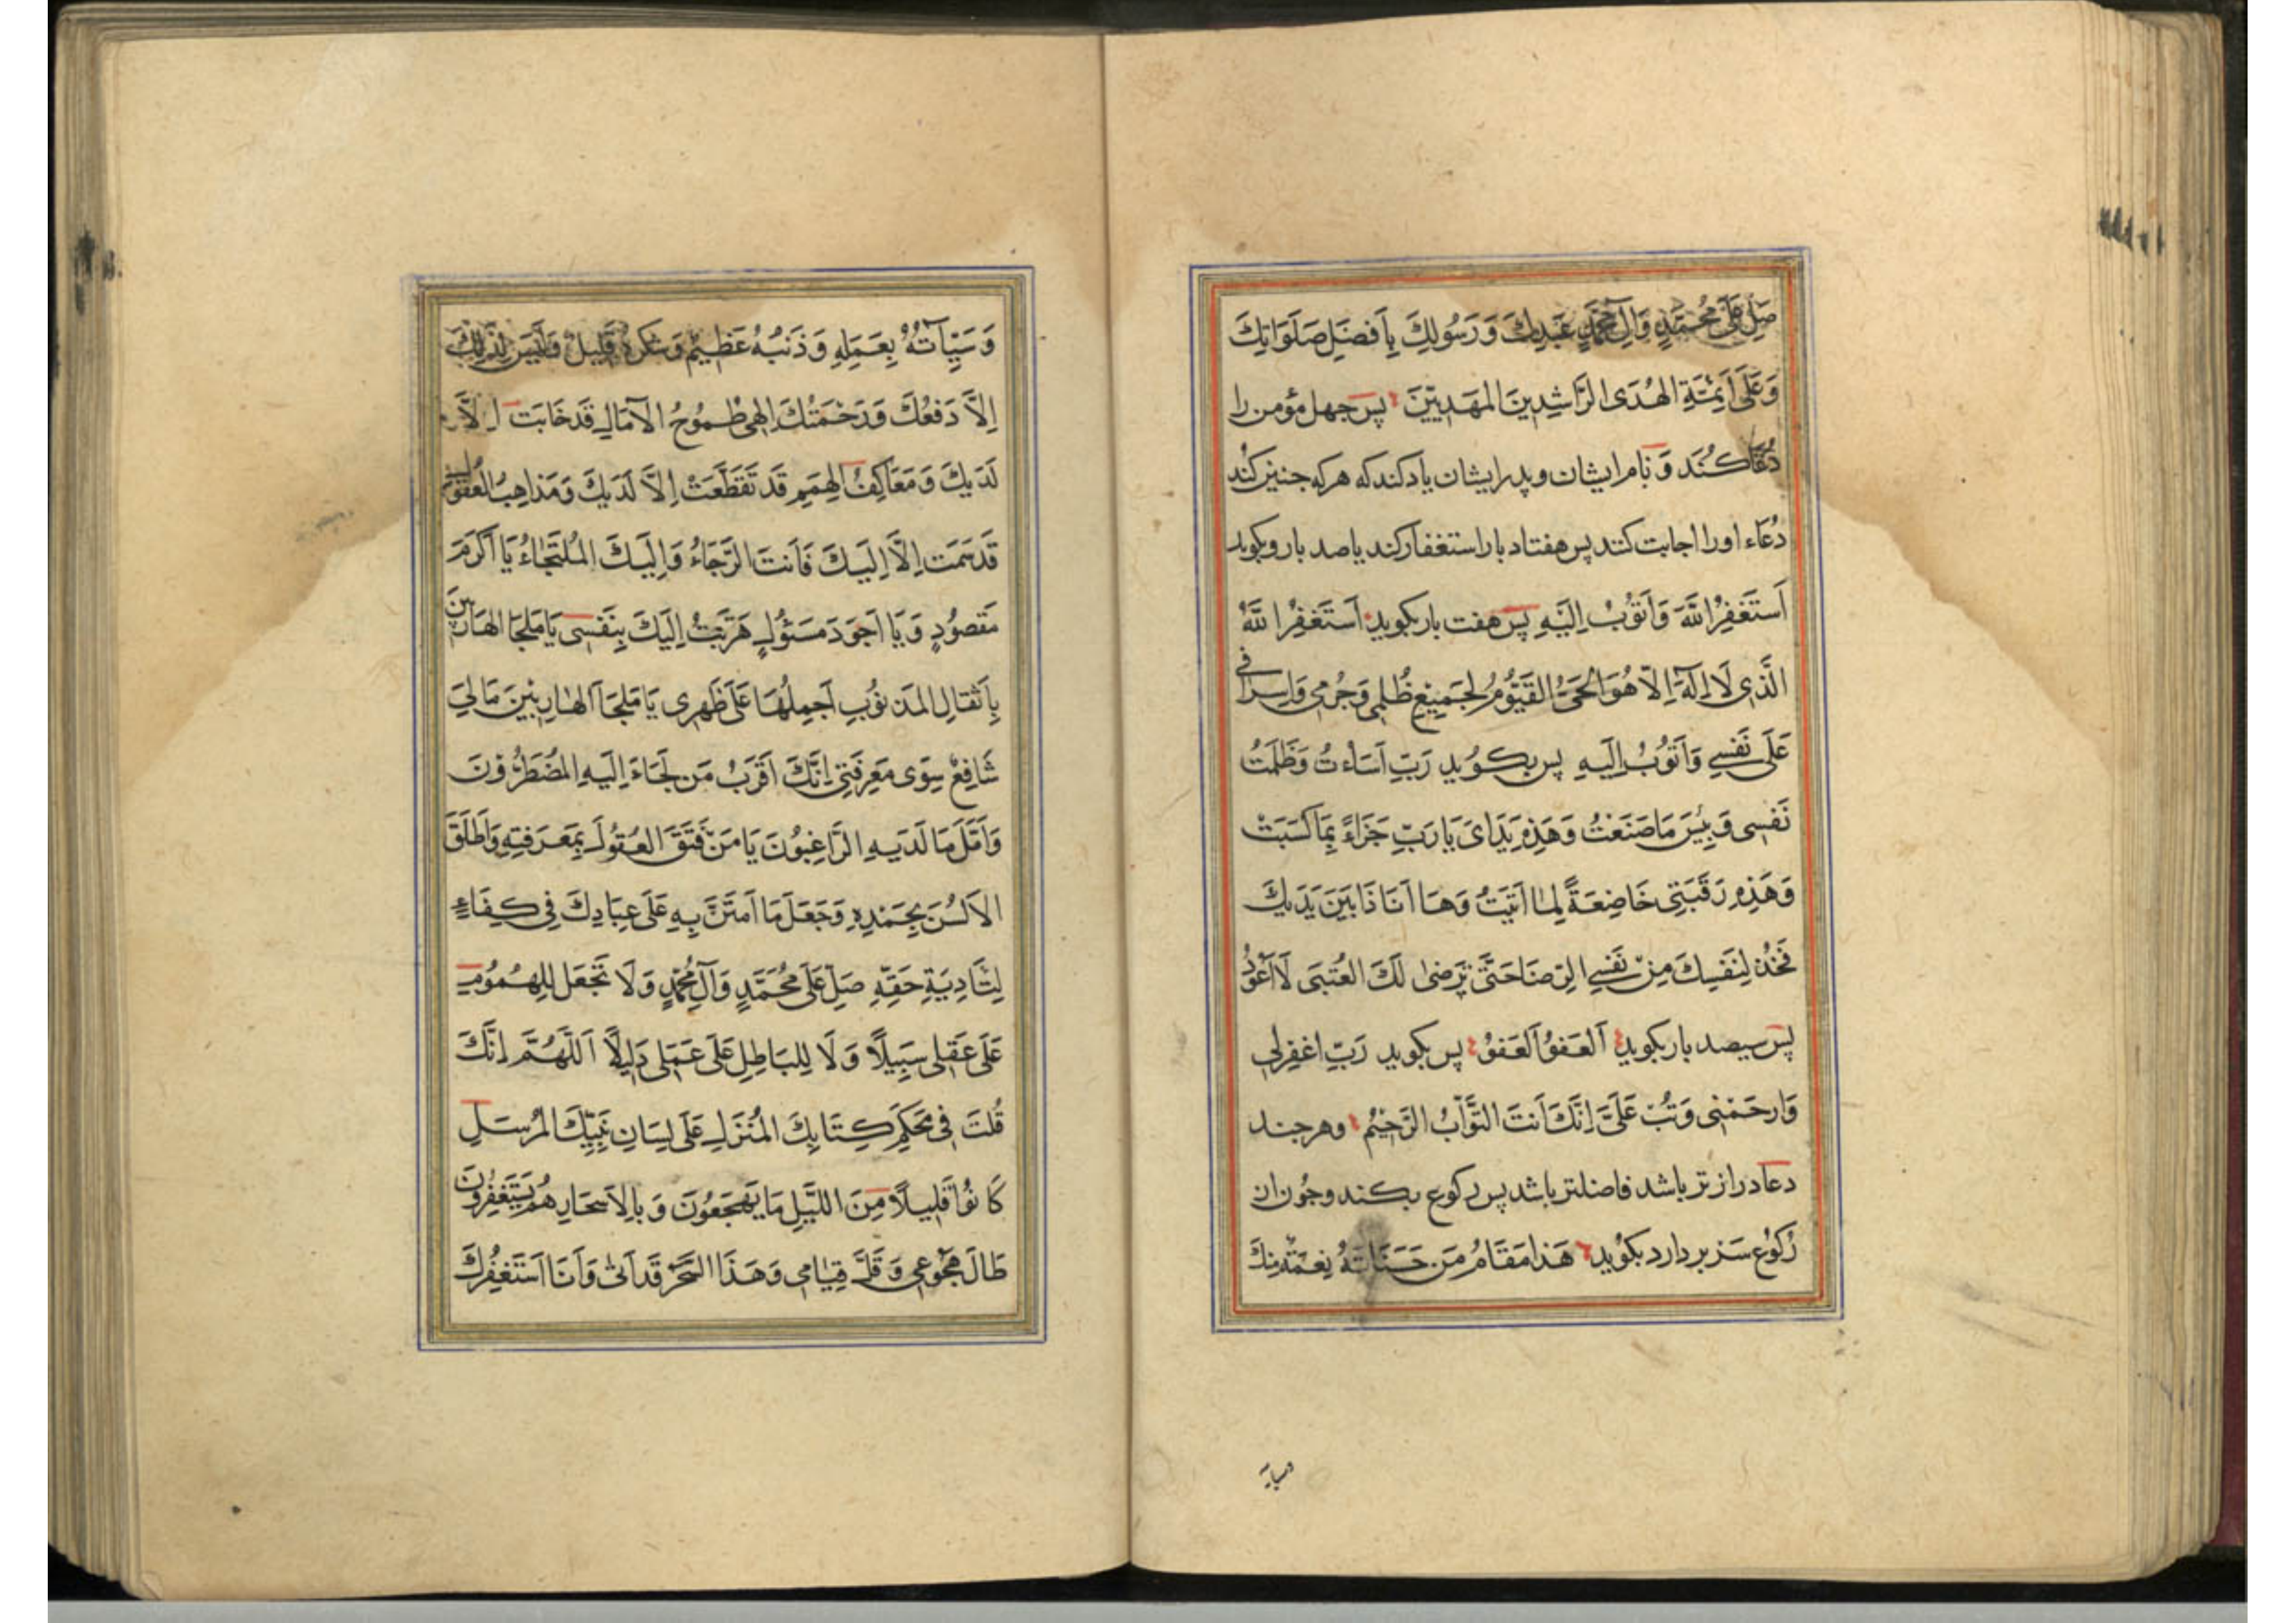 صَلِّ عَلَى مُحَمَّدٍ وَآلِ مُحَمَّدٍ عَبْدِكَ وَرَسُولِكَ بِاَفْضَلِ صَلَوَاتِكَ
وَعَلَى اَئِمَّةِ الْهُدَى الرَّاشِدِينَ الْمَهْدِيِّينَ پس جهل مؤمن را
دُعَا كُنَد وَ نام ايشان و پدر ايشان ياد كند كه هر كه جنين كند
دُعَاء او را اجابت كنند پس هفتاد بار استغفار كند يا صد بار و بكويد
اَسْتَغْفِرُ اللّٰهَ وَاَتُوْبُ اِلَيْهِ پس هفت بار بكويد اَسْتَغْفِرُ اللّٰهَ
الَّذِى لَا اِلٰهَ اِلَّا هُوَ الْحَىُّ الْقَيُّومُ لِجَمِيْعِ ظُلْمِى وَجُرْمِى وَاِسْرَافِى
عَلَى نَفْسِى وَاَتُوْبُ اِلَيْهِ پس بكُويد رَبِّ اَسَاْتُ وَظَلَمْتُ
نَفْسِى وَبِئْسَ مَا صَنَعْتُ وَهَذِهِ يَدَاىَ يَا رَبِّ جَزَاءً بِمَا كَسَبَتْ
وَهَذِهِ رَقَبَتِى خَاضِعَةً لِمَا اَتَيْتُ وَهَا اَنَا ذَا بَيْنَ يَدَيْكَ
فَخُذْ لِنَفْسِكَ مِنْ نَفْسِى الرِّضَا حَتَّى تَرْضٰى لَكَ الْعُتْبَى لَا اَعُوْدُ
پس سيصد بار بكويد اَلْعَفْوُ اَلْعَفْوُ پس بكويد رَبِّ اغْفِرْلِى
وَارْحَمْنِى وَتُبْ عَلَىَّ اِنَّكَ اَنْتَ التَّوَّابُ الرَّحِيْمُ وهر جند
دعا دراز تر باشد فاضلتر باشد پس ركوع بكند وجُون از
رُكُوْع سَر بر دارد بكُويد هَذَا مَقَامُ مَنْ حَسَنَاتُهُ نِعْمَةٌ مِنْكَ
وسياته
وَسَيِّاٰتُهُ بِعَمَلِهِ وَذَنْبُهُ عَظِيْمٌ وَشُكْرُهُ قَلِيلٌ وَلَيْسَ لِذٰلِكَ
اِلَّا دَفْعُكَ وَرَحْمَتُكَ اِلٰهِى طُمُوحُ الْآمَالِ قَدْ خَابَتْ اِلَّا
لَدَيْكَ وَمَعَاكِفُ الْهِمَمِ قَدْ تَقَطَّعَتْ اِلَّا لَدَيْكَ وَمَذَاهِبُ الْعُقُولِ
قَدْ سَمَتْ اِلَّا اِلَيْكَ فَاَنْتَ الرَّجَاءُ وَاِلَيْكَ الْمُلْتَجَاءُ يَا اَكْرَمَ
مَقْصُوْدٍ وَيَا اَجْوَدَ مَسْئُولٍ هَرَبْتُ اِلَيْكَ بِنَفْسِى يَا مَلْجَاَ الْهَارِبِينَ
بِاَثْقَالِ الذُّنُوْبِ اَحْمِلُهَا عَلَى ظَهْرِى يَا مَلْجَاَ الْهَارِبِيْنَ مَا لِىَ
شَافِعٌ سِوَى مَعْرِفَتِى اِنَّكَ اَقْرَبُ مَنْ لَجَاءَ اِلَيْهِ الْمُضْطَرُّوْنَ
وَاَمَّلَ مَا لَدَيْهِ الرَّاغِبُوْنَ يَا مَنْ فَتَقَ الْعُقُولَ بِمَعْرِفَتِهِ وَاَطْلَقَ
الْاَلْسُنَ بِحَمْدِهِ وَجَعَلَ مَا امْتَنَّ بِهِ عَلَى عِبَادِكَ فِى كِفَاءٍ
لِتَادِيَةِ حَقِّهِ صَلِّ عَلَى مُحَمَّدٍ وَآلِ مُحَمَّدٍ وَلَا تَجْعَلْ لِلْهُمُومِ
عَلَى عَقْلِى سَبِيلًا وَلَا لِلْبَاطِلِ عَلَى عَمَلِى دَلِيلًا اَللّٰهُمَّ اِنَّكَ
قُلْتَ فِى مُحْكَمِ كِتَابِكَ الْمُنْزَلِ عَلَى لِسَانِ نَبِيِّكَ الْمُرْسَلِ
كَانُوْا قَلِيلًا مِنَ اللَّيْلِ مَا يَهْجَعُوْنَ وَبِالْاَسْحَارِ هُمْ يَسْتَغْفِرُوْنَ
طَالَ هُجُوْعِى وَقَلَّ قِيَامِى وَهَذَا السَّحَرُ قَدْ اَتٰى وَاَنَا اَسْتَغْفِرُكَ